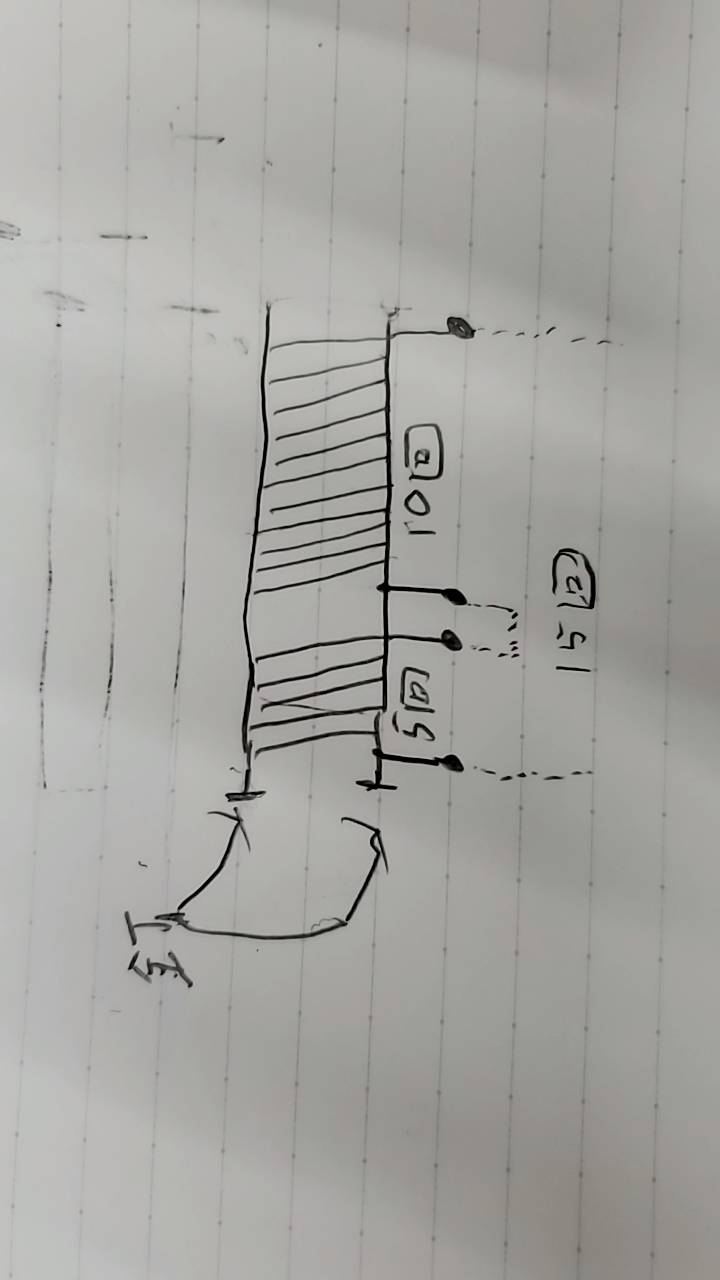 釘
5回 10回
15回